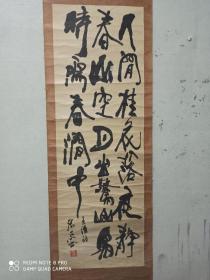 人閒桂花落夜靜
春山空月出驚山鳥
時鳴春澗中
王維詩
REDMI NOTE 8 PRO
AI QUAD CAMERA